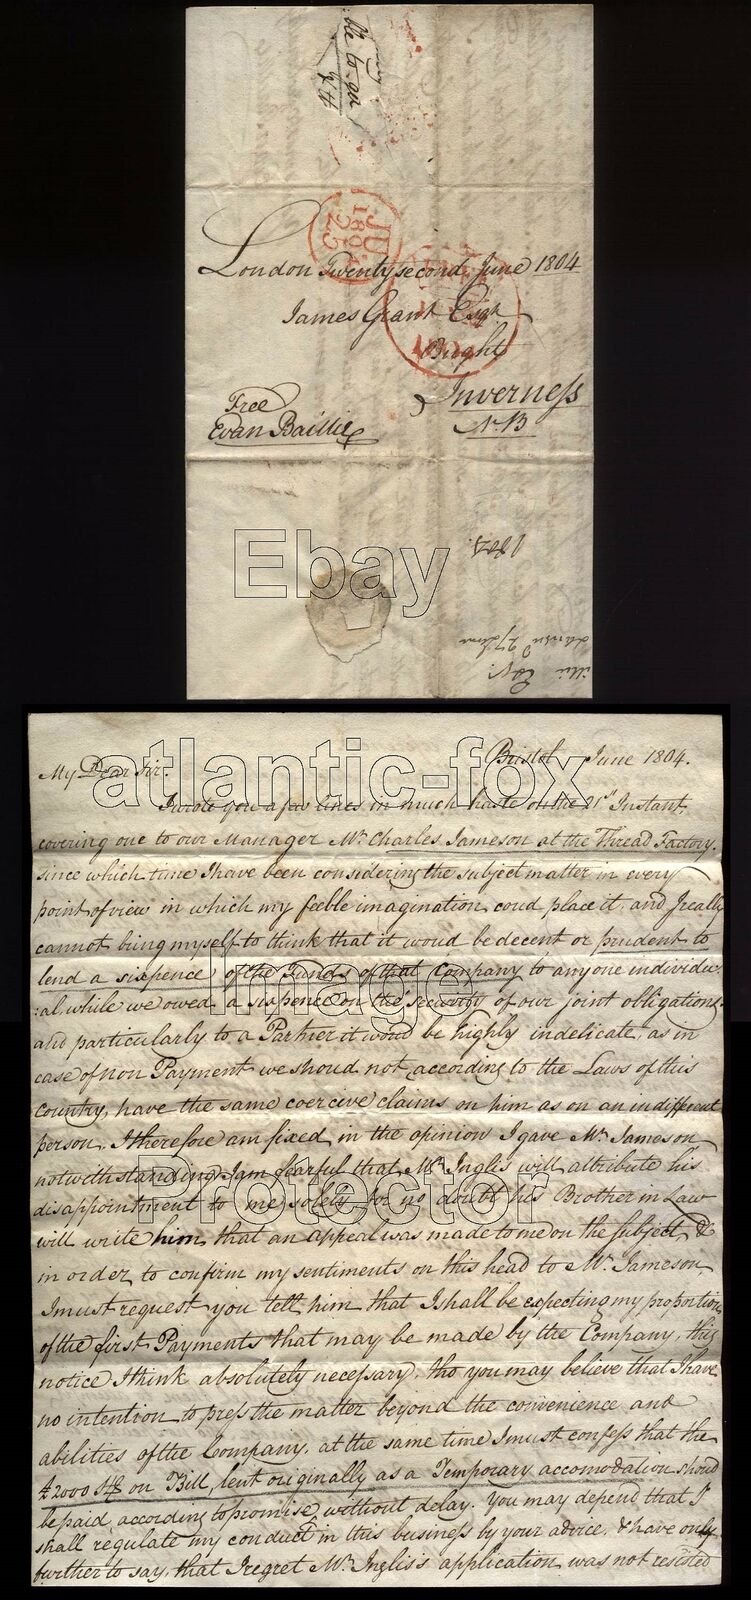 ble to-ga
JU
25
180
London Twenty second June 1804
James Grant Esqr
Bught
Inverness
N.B
Free
Evan Baillie
1804.
Ebay
atlantic-fox
Image
Protector
Bristol June 1804.
My Dear Sir.
I wrote you a few lines in much haste on the 21st Instant,
covering one to our Manager Mr Charles Jameson at the Thread Factory,
since which time I have been considering the subject matter in every
point of view in which my feeble imagination coud place it, and I really
cannot bring myself to think that it woud be decent or prudent to
lend a sixpence of the Funds of that Company to any one individu
:al while we owed a sixpence on the security of our joint obligations,
and particularly to a Partner it woud be highly indelicate, as in
case of non Payment we shoud not according to the Laws of this
Country, have the same coercive claims on him as on an indifferent
person, I therefore am fixed in the opinion I gave Mr Jameson
notwithstanding I am fearful that Mr Inglis will attribute his
disappointment to me solely for no doubt his Brother in Law
will write him that an appeal was made to me on the subject, &
in order to confirm my sentiments on this head to Mr Jameson,
I must request you tell him that I shall be expecting my proportion
of the first Payments that may be made by the Company, this
notice I think absolutely necessary, tho you may believe that I have
no intention to press the matter beyond the convenience and
abilities of the Company, at the same time I must confess that the
£2000 Stg on Bill, lent originally as a Temporary accomodation shoud
be paid according to promise without delay. You may depend that I
shall regulate my conduct in this business by your advice, & have only
further to say, that I regret Mr Inglis's application was not resisted